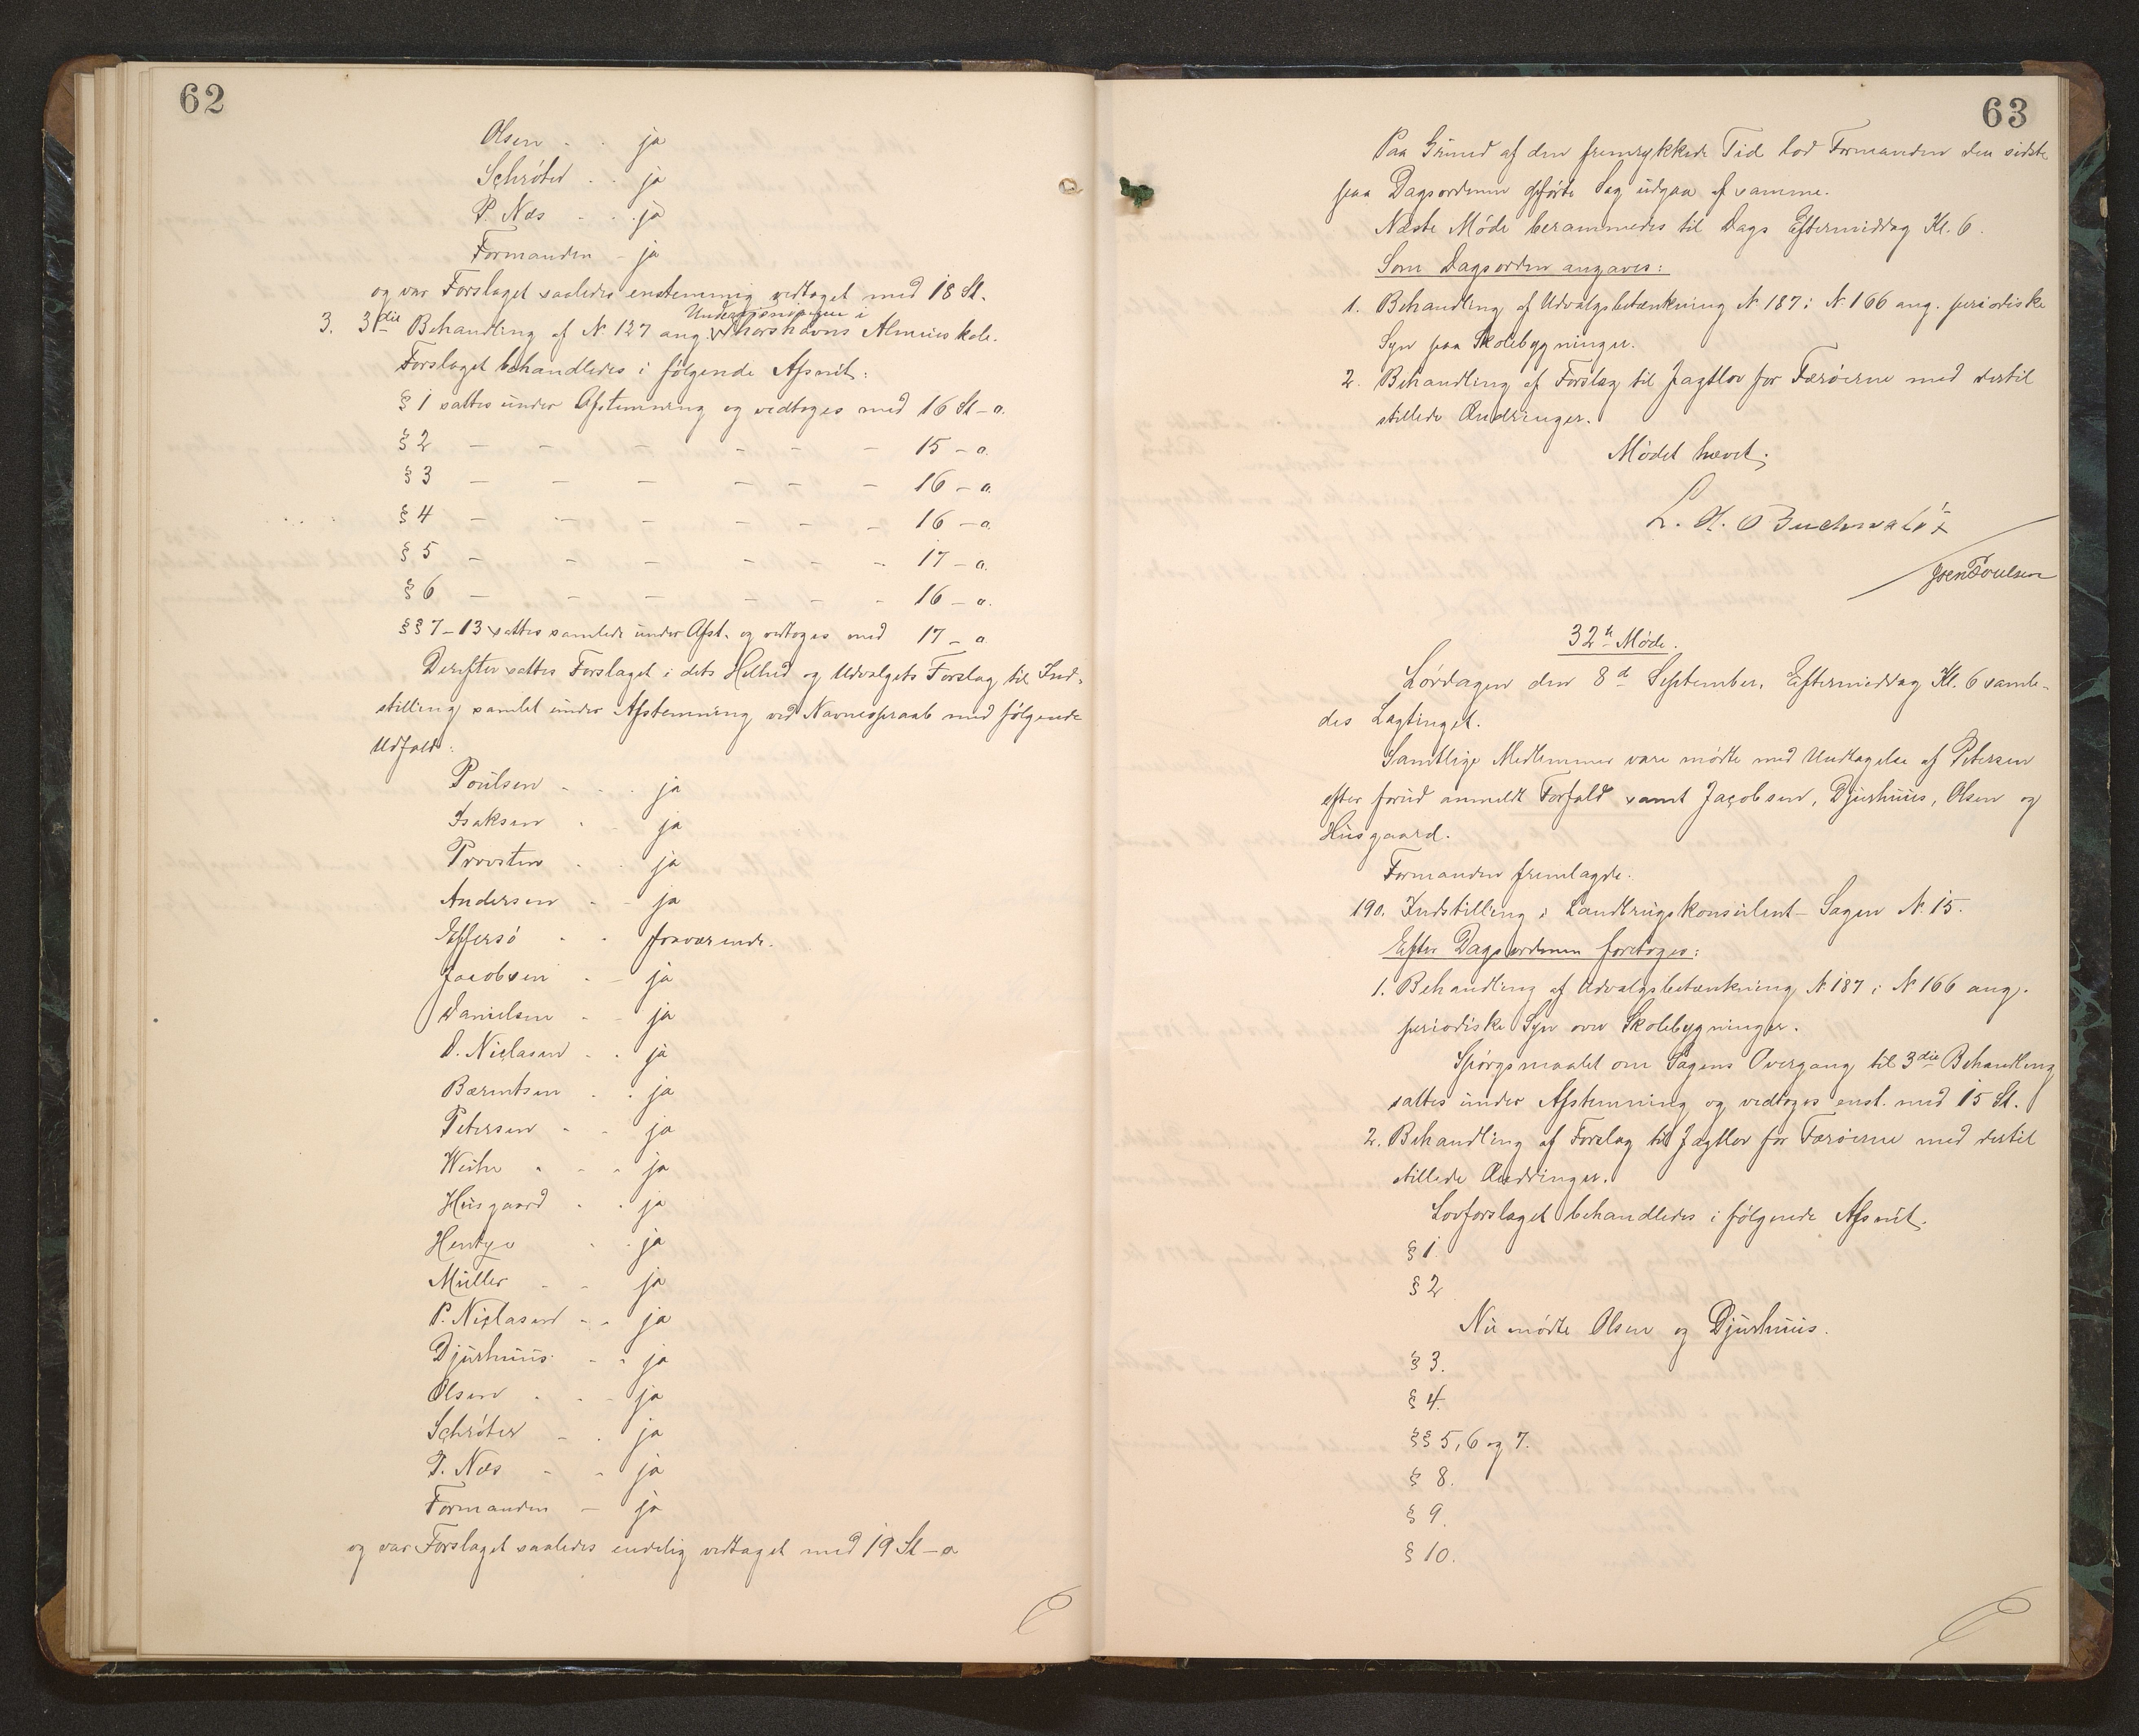 62
Olsen - - ja
Schröter - - ja
P. Næs - - ja
Formanden - ja
og var Forslaget saaledes enstemmig vedtaget med 18 St.
Undervisningen i
3. 3die Behandling af N. 127 ang. Thorshavns Almueskole.
Forslaget behandledes i følgende Afsnit:
§ 1 sattes under Afstemning og vedtoges med 16 St - o.
§ 2 - - - - - - 15 - o.
§ 3 - - - - - - 16 - o.
§ 4 - - - - - - 16 - o.
§ 5 - - - - - - 17 - o.
§ 6 - - - - - - 16 - o.
§§ 7-13 sattes samlede under Afst. og vedtoges med 17 - o
Derefter sattes Forslaget i dets Helhed og Udvalgets Forslag til Ind-
stilling samlet under Afstemning ved Navneopraab med følgende
Udfald:
Poulsen - - - ja
Isaksen - - ja
Provsten - - ja
Andersen - - ja
Effersö - - fraværende.
Jacobsen - - ja
Danielsen - - ja
O. Niclasen - - ja
Bærentsen - - ja
Petersen - - ja
Weihe - - - ja
Husgaard - - ja
Hentze - - ja
Müller - - ja
P. Niclasen - - ja
Djurhuus - - ja
Olsen - - - ja
Schröter - - ja
P. Næs - - ja
Formanden - ja
og var Forslaget saaledes endelig vedtaget med 19 St - o
63
Paa Grund af den fremrykkede Tid lod Formanden den sidste
paa Dagsordenen opførte Sag udgaa af samme.
Næste Møde berammedes til Dags Eftermiddag Kl. 6.
Som Dagsorden angaves:
1. Behandling af Udvalgsbetænkning N. 187 i N. 166 ang. periodiske
Syn paa Skolebygninger.
2. Behandling af Forslag til Jagtlov for Færöerne med dertil
stillede Ændringer.
Mødet hævet.
L. H. Buchwaldt
Joen Poulsen
32te Møde.
Lördagen den 8d September, Eftermiddag Kl. 6 samle-
des Lagtinget.
Samtlige Medlemmer vare mødte med Undtagelse af Petersen
efter forud anmeldt Forfald samt Jacobsen, Djurhuus, Olsen og
Husgaard.
Formanden fremlagde:
190. Indstilling i Landbrugskonsulent-Sagen N. 15.
Efter Dagsordenen foretoges:
1. Behandling af Udvalgsbetænkning N. 187 i N. 166 ang.
periodiske Syn over Skolebygninger.
Spörgsmaalet om Sagens Overgang til 3die Behandling
sattes under Afstemning og vedtoges enst. med 15 St.
2. Behandling af Forslag til Jagtlov for Færöerne med dertil
stillede Ændringer.
Lovforslaget behandledes i følgende Afsnit.
§ 1.
§ 2
Nu mødte Olsen og Djurhuus.
§ 3.
§ 4.
§§ 5, 6 og 7.
§ 8.
§ 9.
§ 10.